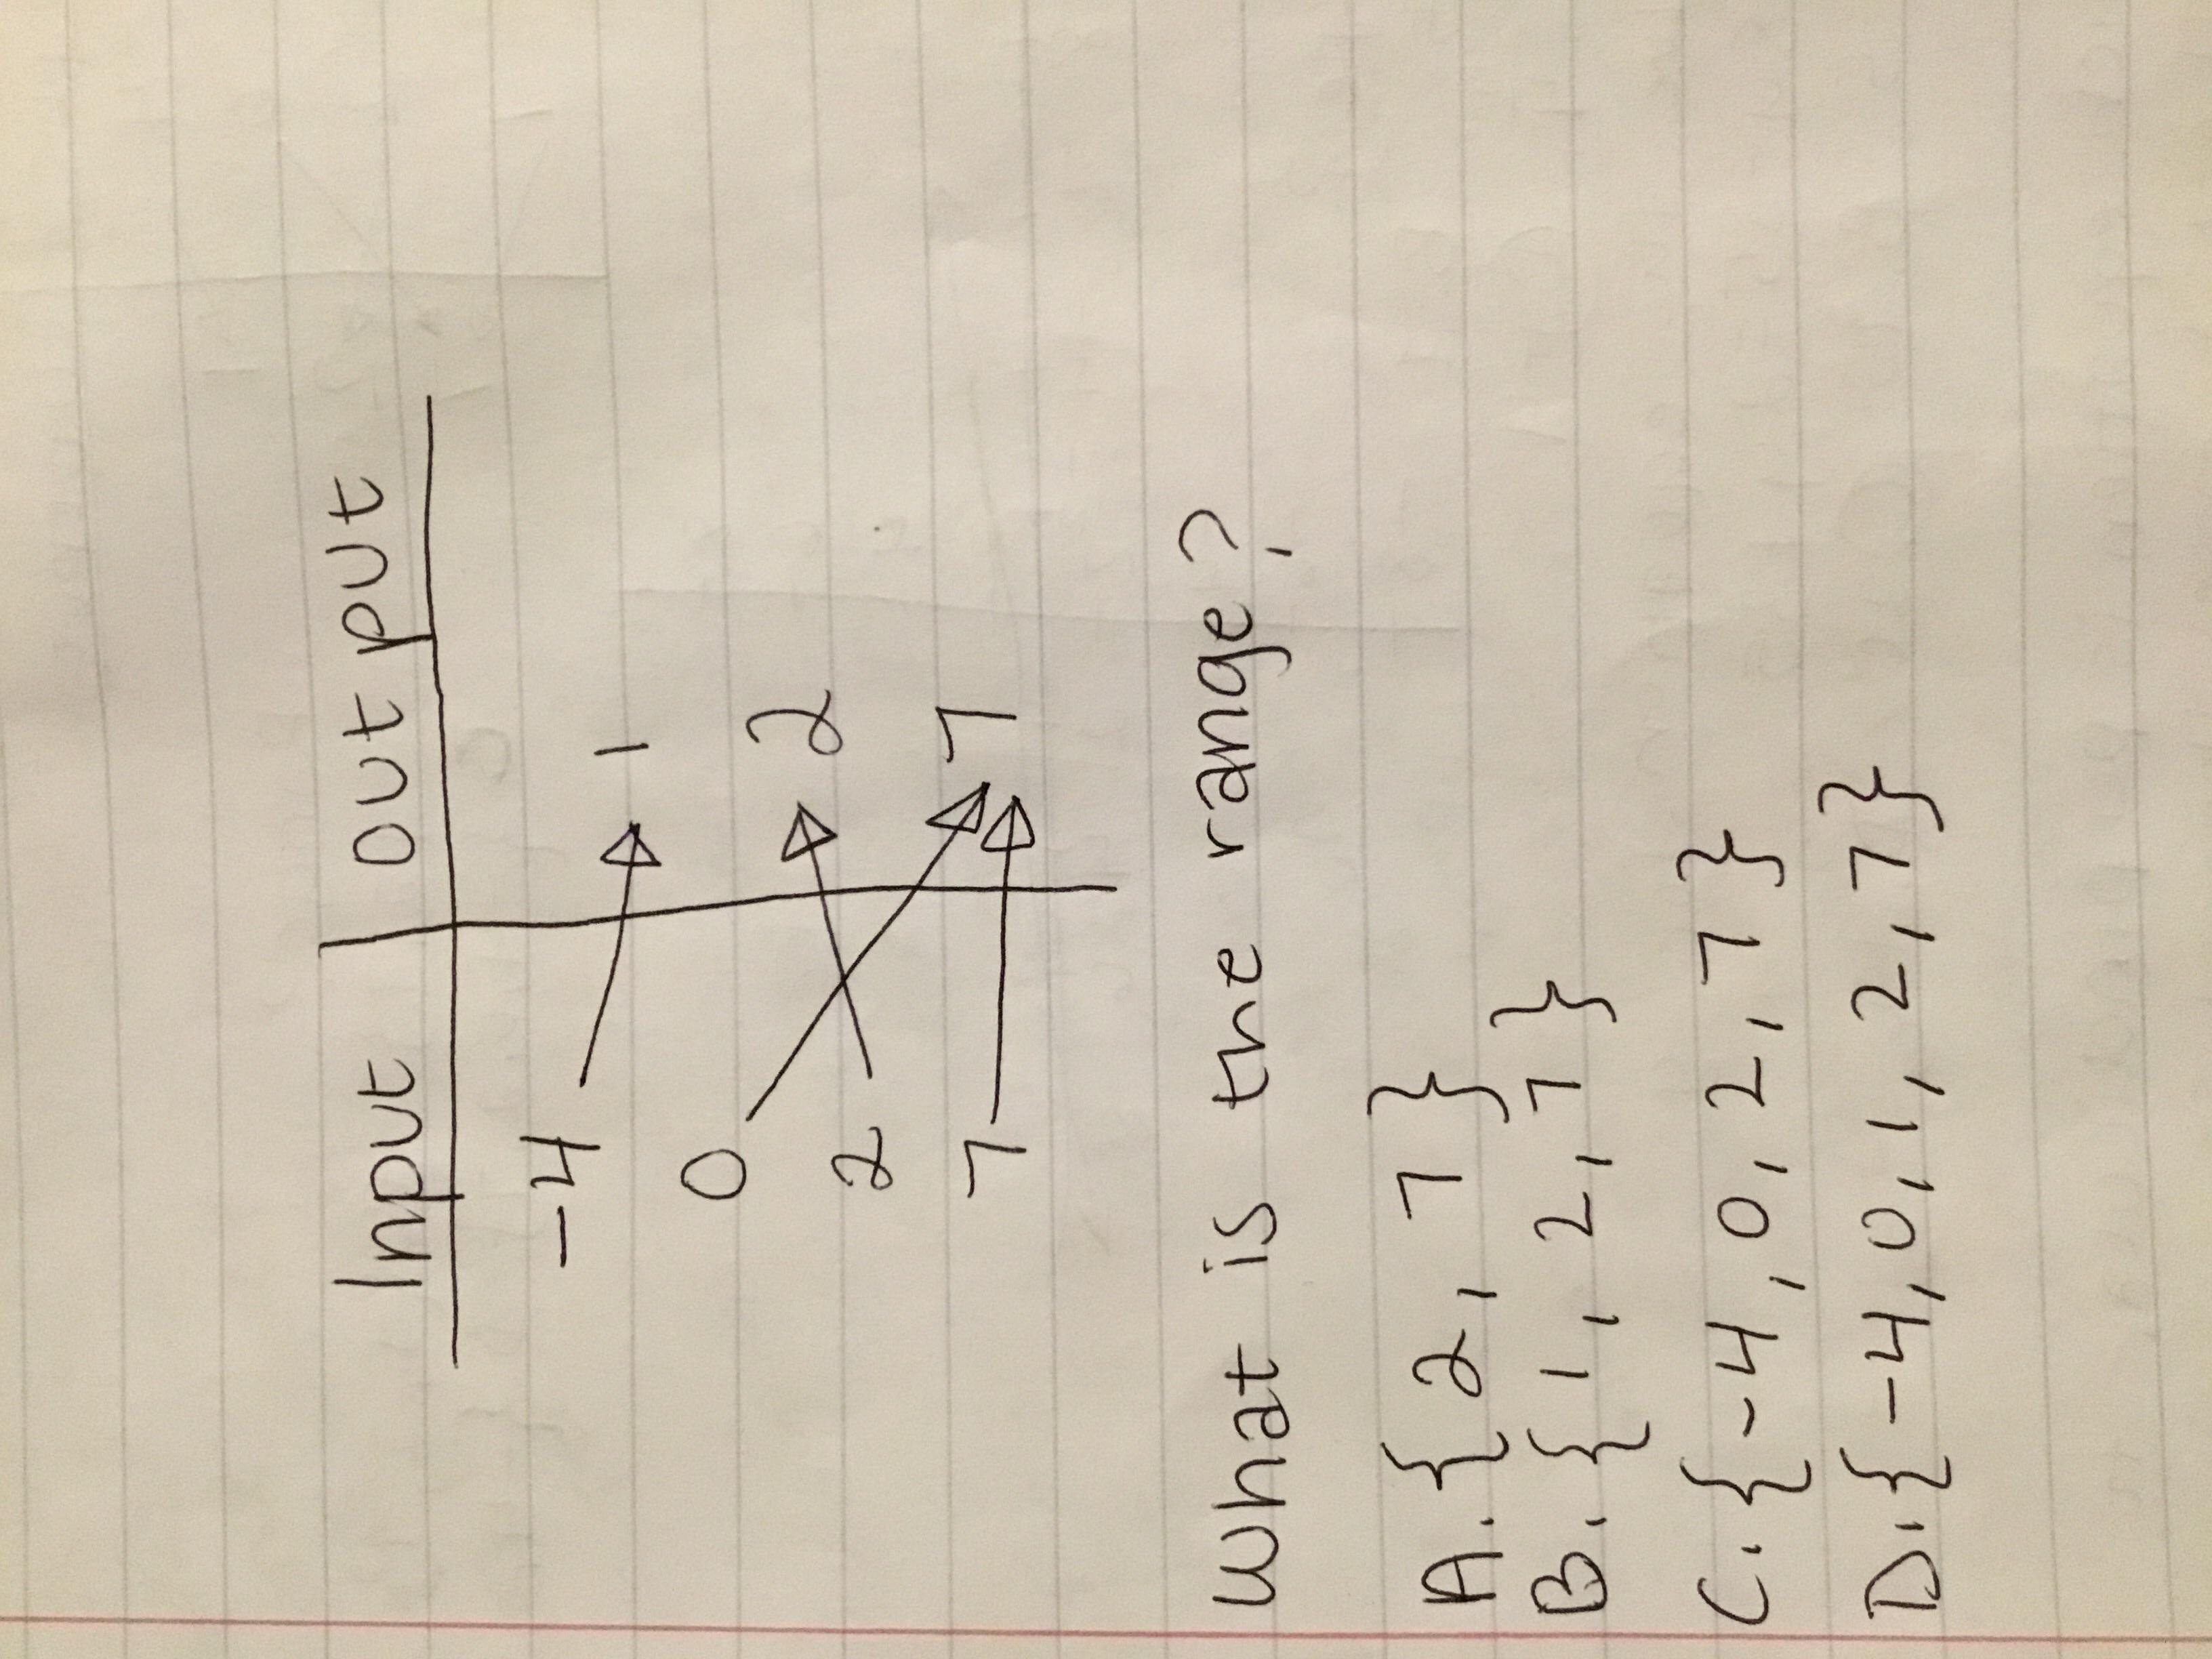 Input | Output
-4 1
0 2
2 7
7
What is the range?
A. {2, 7}
B. {1, 2, 7}
C. {-4, 0, 2, 7}
D. {-4, 0, 1, 2, 7}